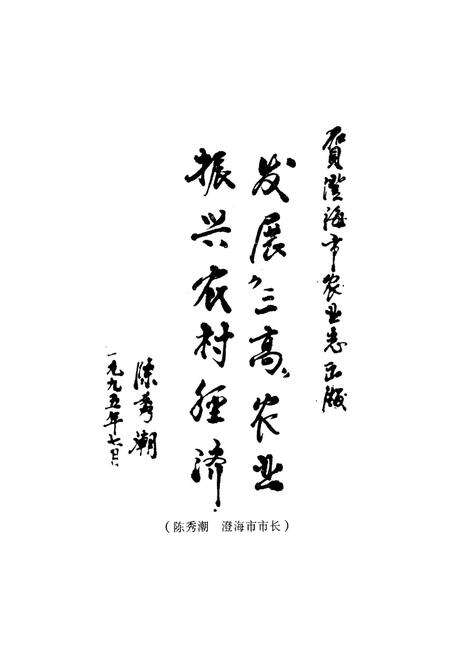 贺澄海市农业志出版
发展“三高”农业
振兴农村经济
陈秀潮
一九九五年七月
（陈秀潮　澄海市市长）